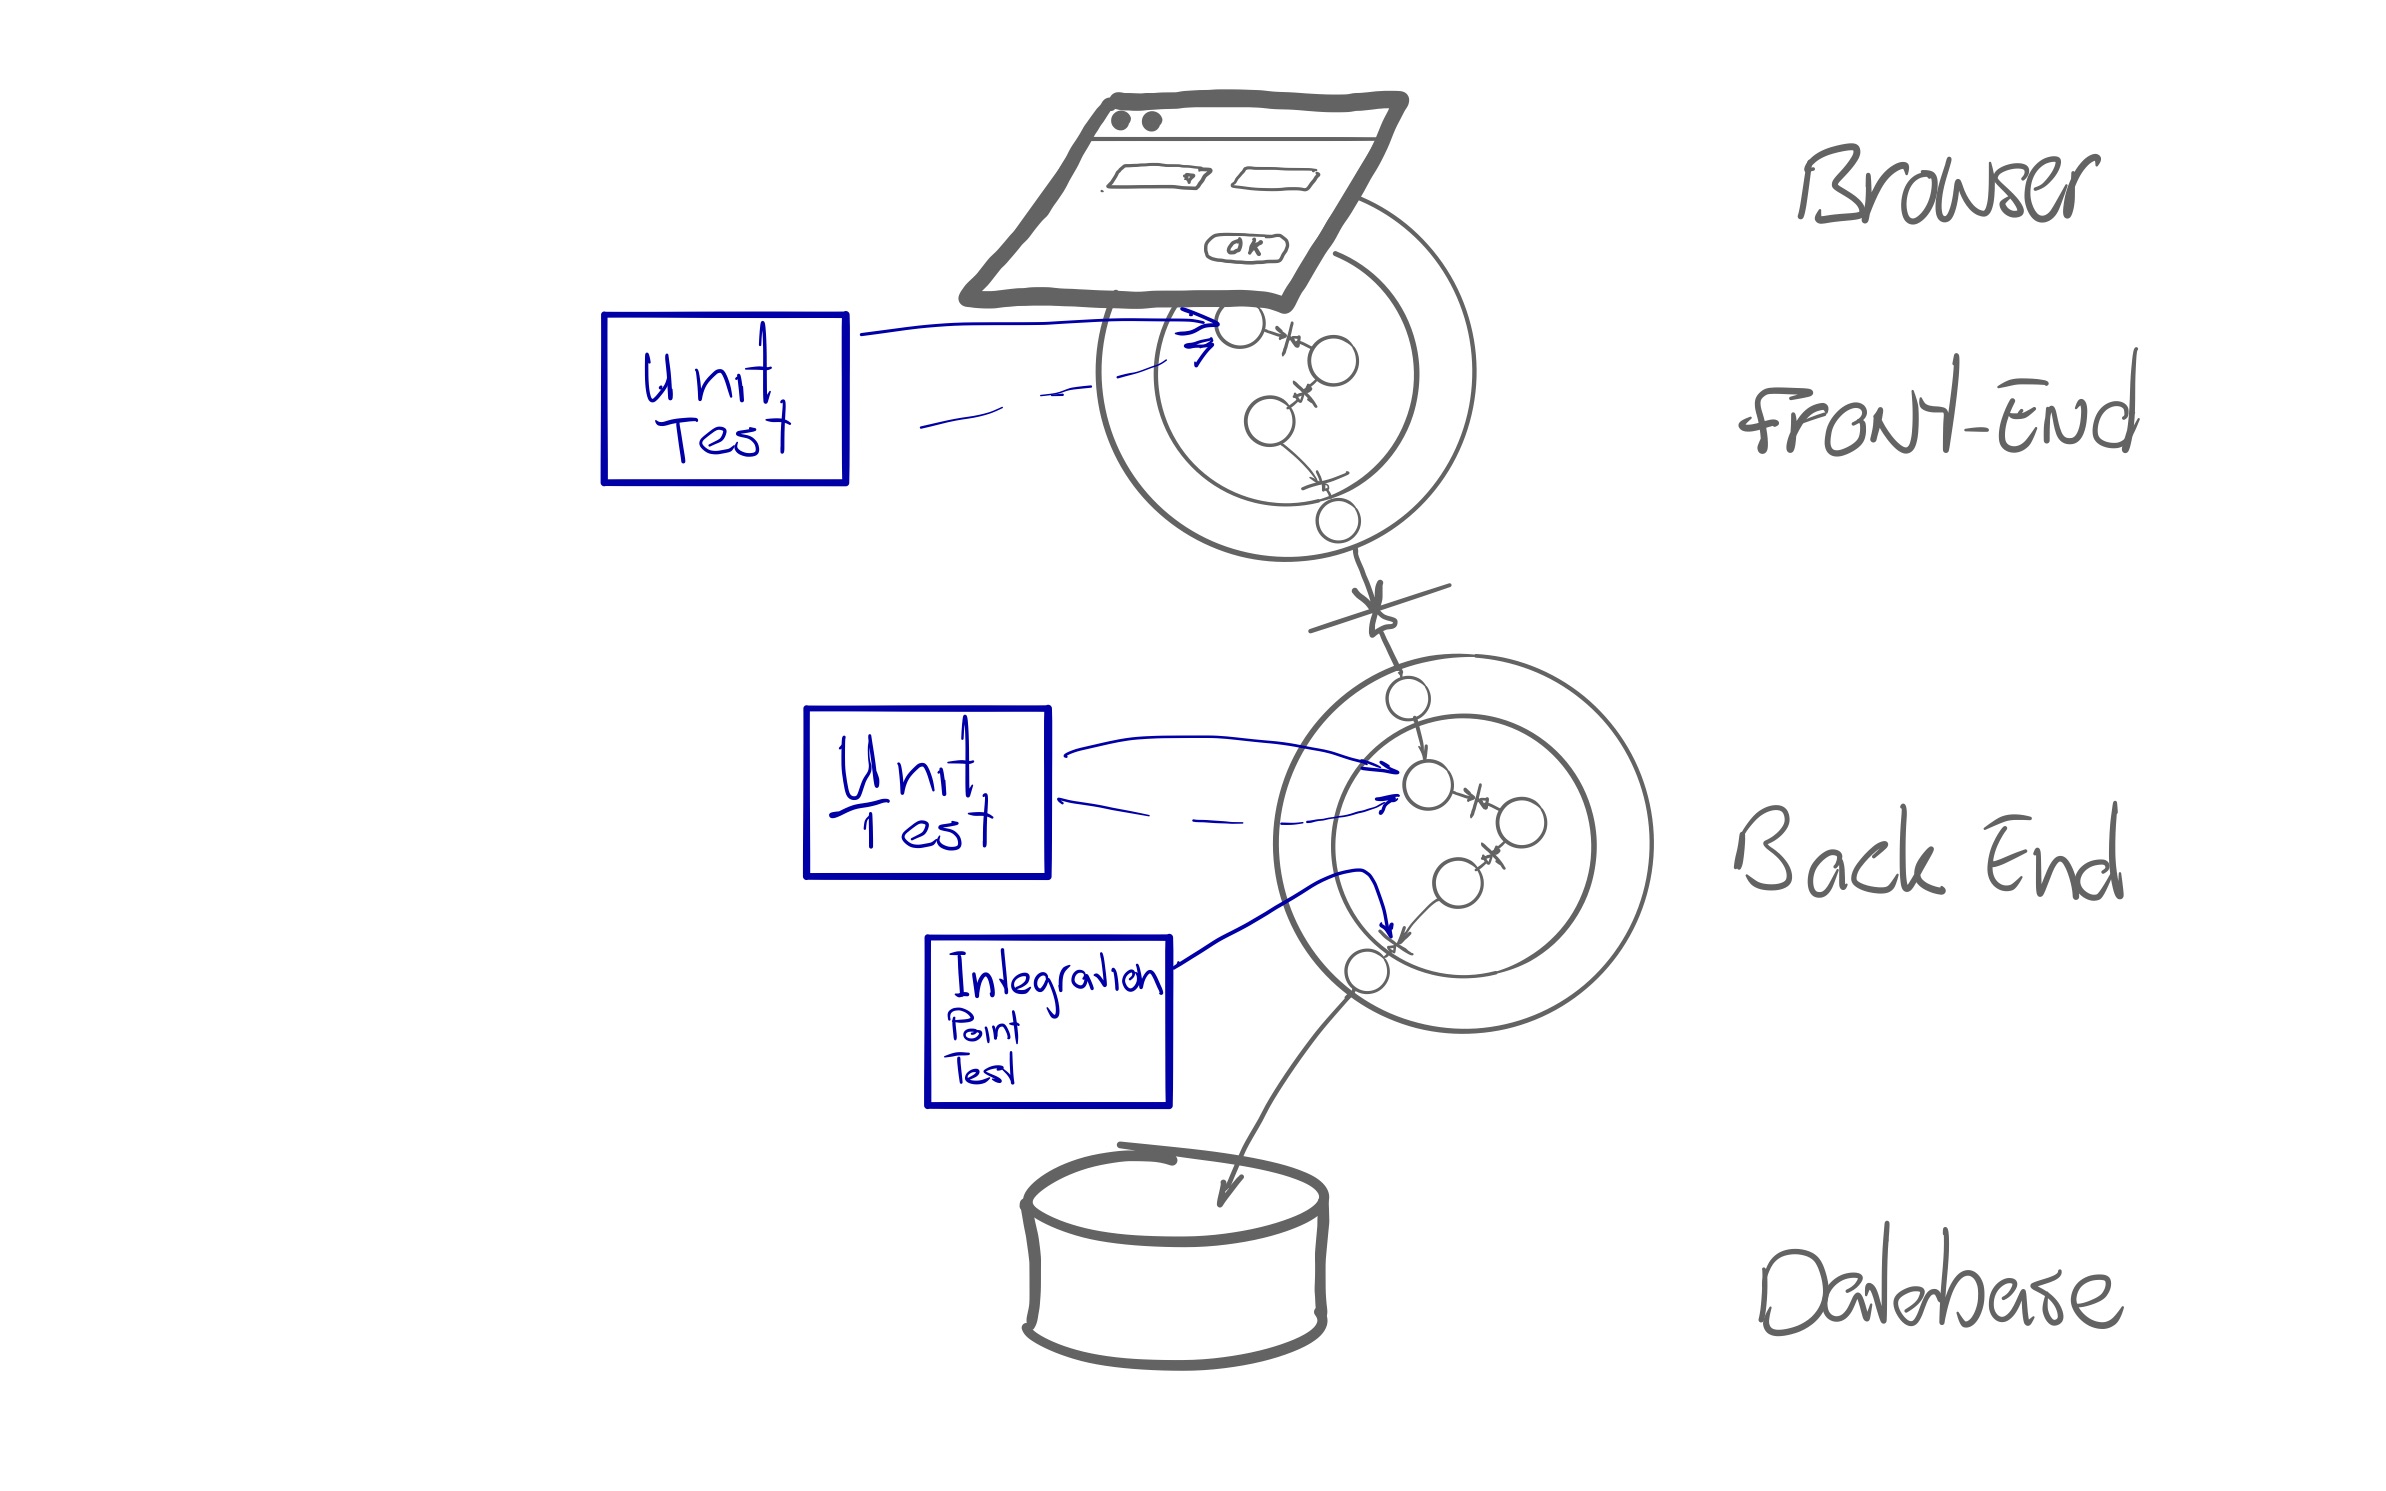 Browser
OK
Unit
Test
Front-End
Unit
Test
Back End
Integration
Point
Test
Database